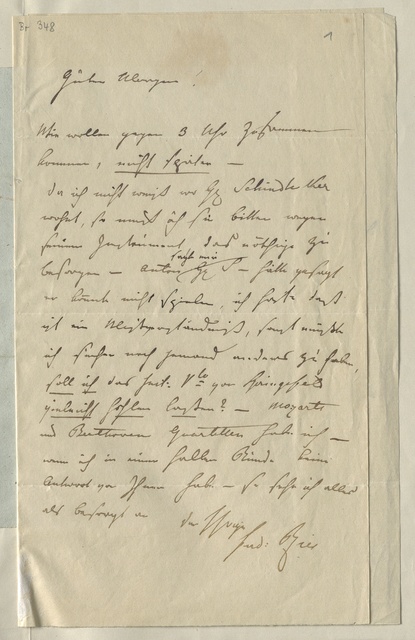 Br 348
1
Guten Morgen!
Wir wollen gegen 3 Uhr zusammen
kommen, nicht später —
da ich nicht weiß wo H. Schindlker
wohnt, so muß ich sie bitten wegen
seinem Instrument, das nöthige zu
besorgen — Anton H.
sagt mir
hätte gesagt
er könne nicht spielen, ich hoffe daß
ist ein Mißverständniß, sonst müßte
ich suchen noch jemand anderes zu haben,
soll ich das Inst. Vlo von
vielleicht hohlen laßen? — Mozarts
und Beethoven Quartetten habe ich —
wenn ich in einer halben Stunde keine
Antwort von Ihnen habe — so sehe ich alles
als besorgt an
der Ihrige
Ferd: Ries